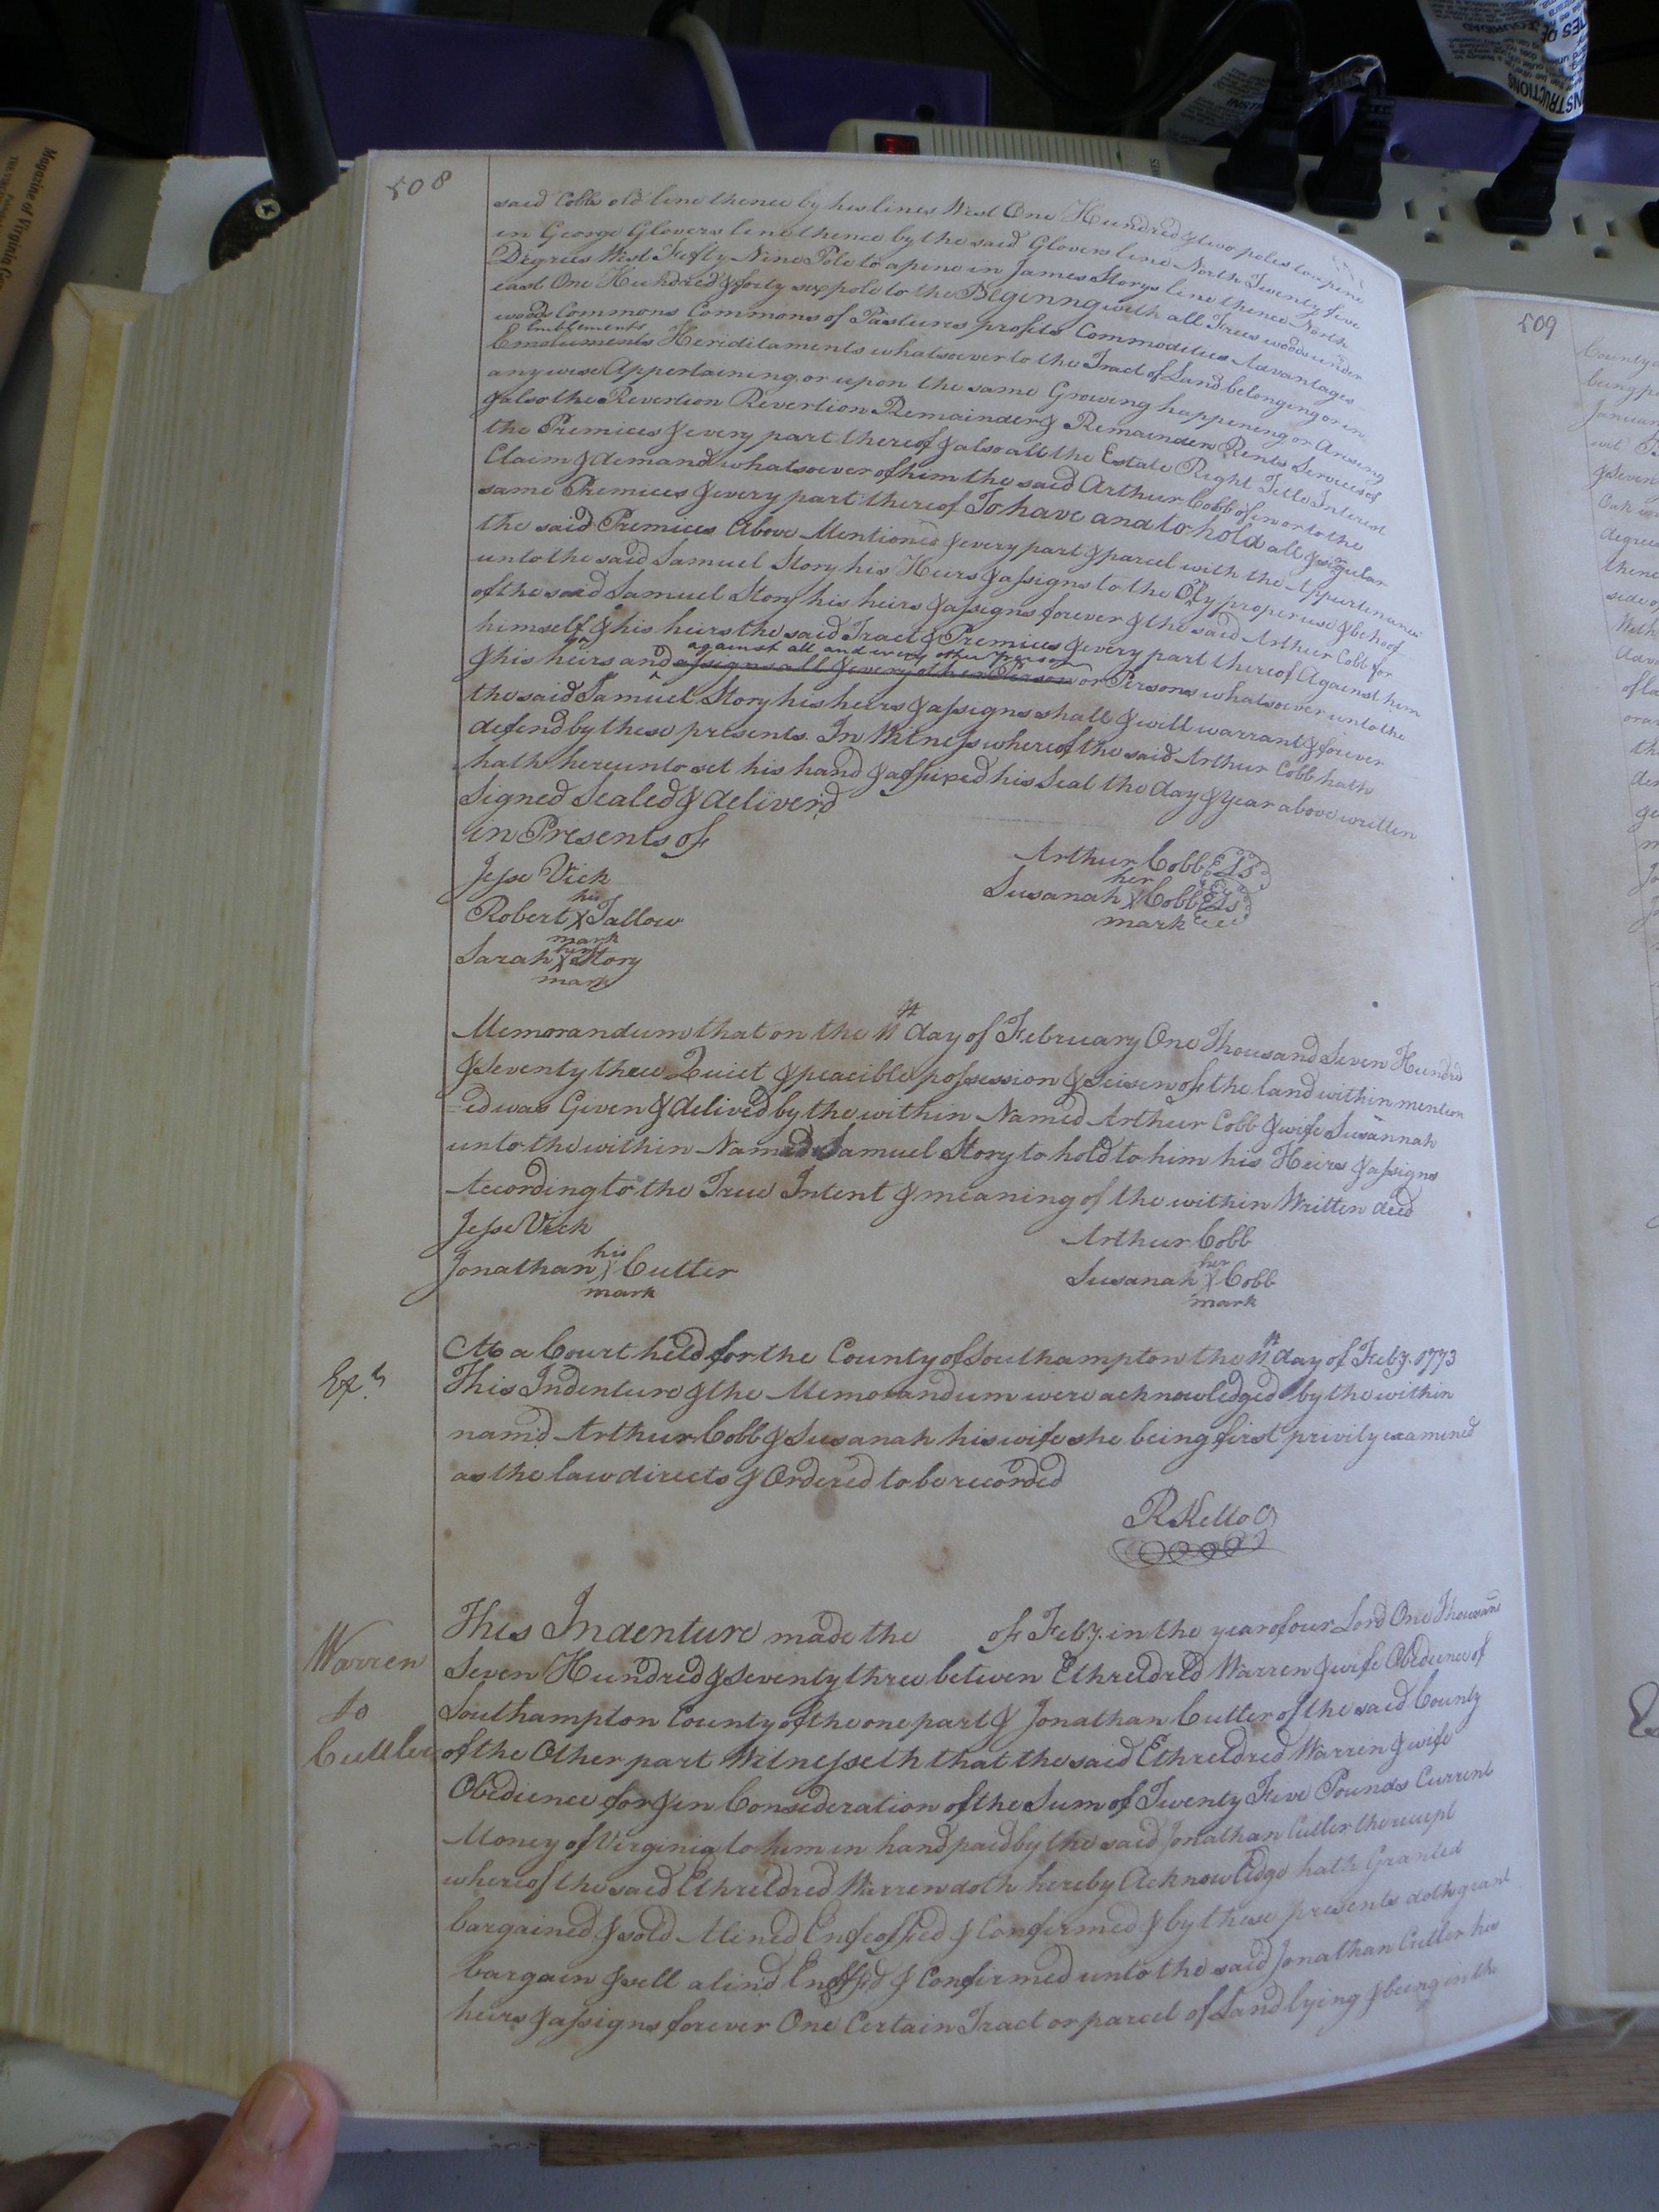 508
said Cobbs old line thence by his lines West One Hundred & two poles to a pine
in George Glovers line thence by the said Glovers line North Twenty five
Degrees West Fifty Nine Pole to a pine in James Storys line thence North
east One Hundred & forty six pole to the Beginng with all Trees woods under
woods Commons Commons of Pastures profits Commodities Advantages
Emblements
Emoluments Hereditaments whatsoever to the Tract of Land belonging or in
any wise Appertaining or upon the same Growing happening or Arising
& also the Revertion Revertion Remainder & Remainders Rents Services of
the Premices & every part thereof & also all the Estate Right Title Interest
Claim & demand whatsoever of him the said Arthur Cobb of in or to the
same Premices & every part thereof To have and to hold all & singular
the said Premices Above Mentioned & every part & parcel with the Appurtenances
unto the said Samuel Story his Heirs & assigns to the Only proper use & behoof
of the said Samuel Story his heirs & assigns forever & the said Arthur Cobb for
himself & his heirs the said Tract & Premices & every part thereof Against him
against all and every other person
& his heirs and assigns all & every other Person or Persons whatsoever unto the
the said Samuel Story his heirs & assigns shall & will warrant & forever
defend by these presents. In Witness whereof the said Arthur Cobb hath
hath hereunto set his hand & affixed his Seal the day & year above written
Signed Sealed & deliver'd
in Presents of
Jesse Vick
his
Robert X Tallow
mark
Sarah X Story
mark
Arthur Cobb LS
her
Susanah X Cobb LS
mark
Memorandum that on the 11th day of February One Thousand Seven Hundred
& Seventy thee Quiet & peacible possession & Seisen of the land within mention
=ed was Given & delived by the within Named Arthur Cobb & wife Susannah
unto the within Named Samuel Story to hold to him his Heirs & assigns
According to the True Intent & meaning of the within Written deed
Jesse Vick
his
Jonathan X Cutler
mark
Arthur Cobb
her
Susanah X Cobb
mark
Exd
At a Court held for the County of Southampton the 11th day of Feby. 1773
This Indenture & the Memorandum were acknowledged by the within
nam'd Arthur Cobb & Susanah his wife she being first privily examined
as the law directs & Ordered to be recorded
R Kello
Warren
to
Cutler
This Indenture made the of Feby. in the year of our Lord One Thousand
Seven Hundred & Seventy three betwen Ethreldred Warren & wife Obedience of
Southampton County of the one part & Jonathan Cutler of the said County
of the Other part Witnesseth that the said Ethreldred Warren & wife
Obedience for & in Consideration of the Sum of Twenty Five Pounds Current
Money of Virginia to him in hand paid by the said Jonathan Cutler the receipt
whereof the said Ethreldred Warren doth hereby Acknowledge hath Granted
bargained & sold Alined Enfeoffed & Confirmed & by these presents doth grant
bargain & sell alind Enffed & Confirmed unto the said Jonathan Cutler his
heirs & assigns forever One Certain Tract or parcel of Land lying & being in the
509